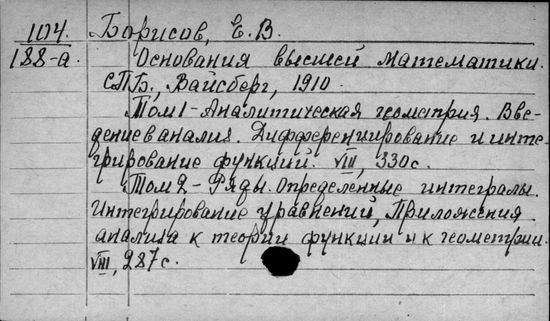 104. Борисов, Е. В.
188-а. Основания высшей математики.
СПБ., Вайсберг, 1910.
Том 1 - Аналитическая геометрия. Вве-
дение в анализ. Дифференциирование и инте-
грирование функции. VIII, 330 с.
Том 2 - Ряды. Определенные интегралы.
Интегрирование уравнений, Приложения
анализа к теории функции и к геометрии.
VIII, 287 с.